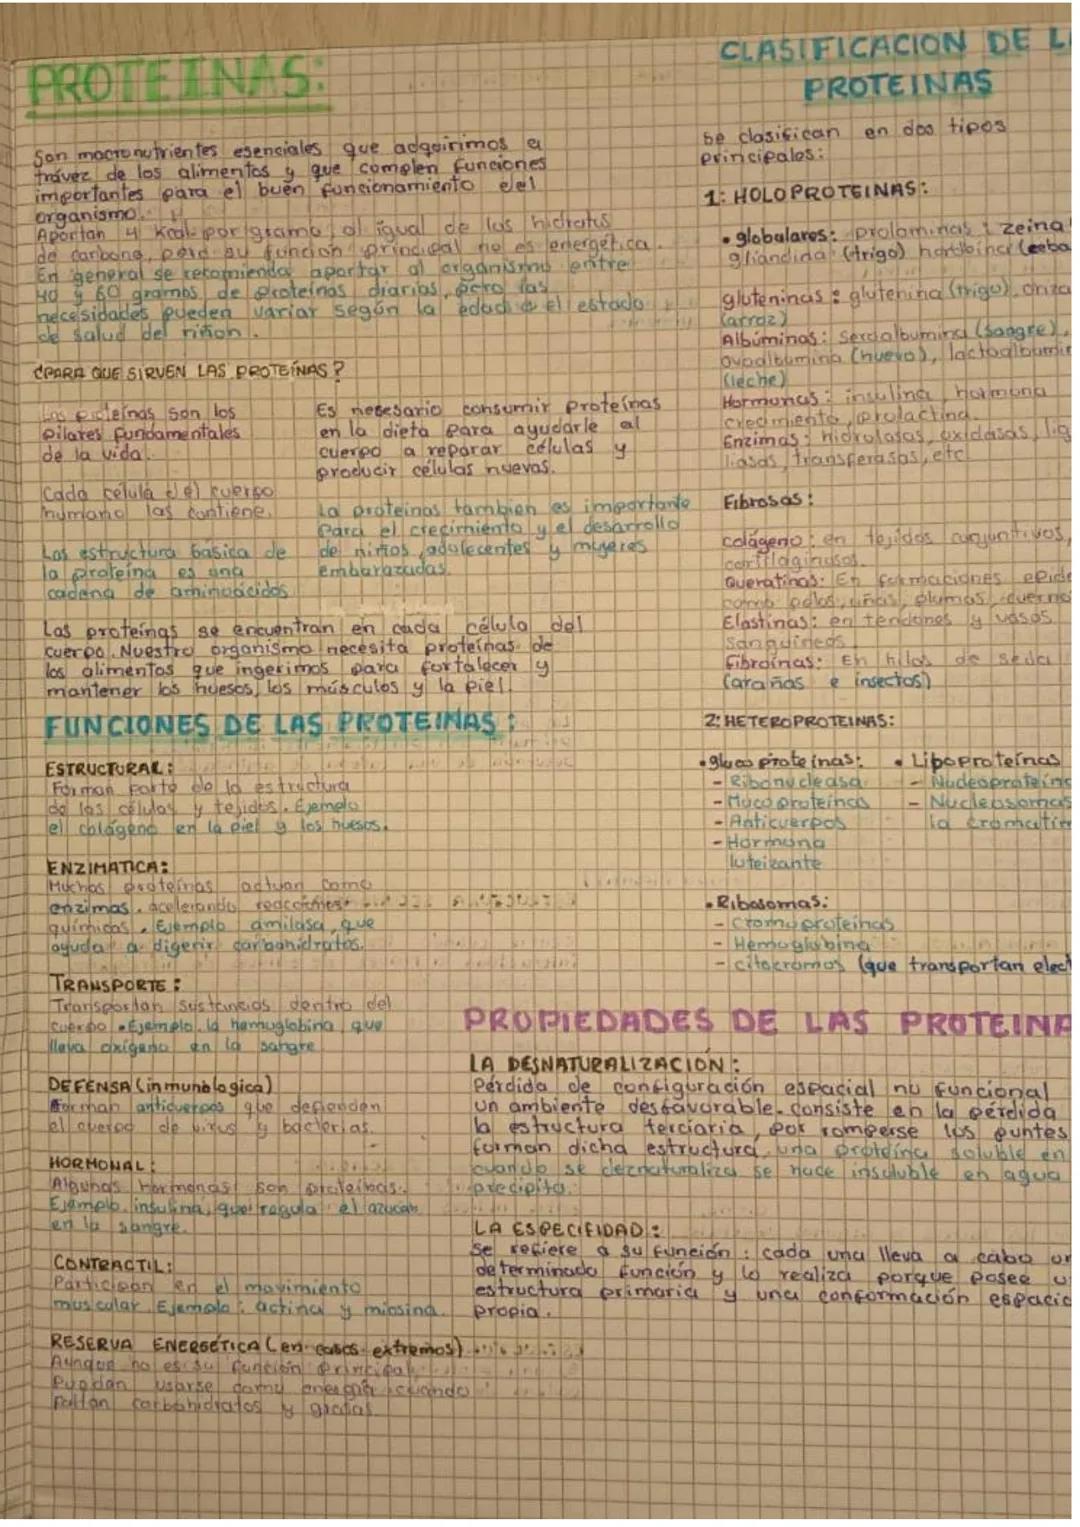 PROTEINAS:
Son macronutrientes esenciales que adquirimos a
travez de los alimentos y que complen funciones
importantes para el buen funcionamiento del
organismo.
Aportan 4 Kcal por gramo, al igual de los hidratos
de carbono, pero su funcion principal no es energética.
En general se recomienda aportar al organismo entre
40 y 60 gramos de proteinas diarias, pero las
necesidades pueden variar según la edad o el estado
de salud del riñon.
¿PARA QUE SIRVEN LAS PROTEÍNAS?
Las proteínas son los
pilares fundamentales
de la vida.
Cada célula del cuerpo
humano las contiene.
Las estructura básica de
la proteína es una
cadena de aminoácidos
Es nesesario consumir proteínas
en la dieta para ayudarle al
cuerpo a reparar células y
producir células nuevas.
La proteinas tambien es importante
para el crecimiento y el desarrollo
de niños, adolecentes y mujeres
embarazadas.
Las proteínas se encuentran en cada célula del
cuerpo. Nuestro organismo necesita proteínas de
los alimentos que ingerimos para fortalecer y
mantener los huesos, los músculos y la piel.
FUNCIONES DE LAS PROTEINAS:
ESTRUCTURAL:
Forman parte de la estructura
de las células y tejidos. Ejemplo
el colágeno en la piel y los huesos.
ENZIMATICA:
Muchas proteínas actuan como
enzimas, acelerando reacciones
químicas. Ejemplo amilasa, que
ayuda a digerir carbohidratos.
TRANSPORTE:
Transportan sustancias dentro del
cuerpo. Ejemplo la hemoglobina que
lleva oxígeno en la sangre
DEFENSA (inmunologica)
Forman anticuerpos que defienden
el cuerpo de virus y bacterias.
HORMONAL:
Algunas hormonas son proteínas.
Ejemplo insulina, que regula el azucar
en la sangre.
CONTRACTIL:
Participan en el movimiento
muscular. Ejemplo: actina y miosina.
RESERVA ENERGÉTICA (en casos extremos)
Aunque no es su función principal,
Puedan usarse como energía cuando
faltan carbohidratos y grasas.
CLASIFICACION DE
PROTEINAS
Se clasifican en dos tipos
principales:
1: HOLOPROTEINAS:
• globulares: prolaminas: zeina
gliandida (trigo)
gluteninas: glutenina (trigo),
(arroz)
Albúminas: seroalbumina (sangre),
ovoalbumina (huevo),
(leche)
Hormonas: insulina, hormona
crecimiento, prolactina.
Enzimas: hidrolasas, oxidasas,
liasas, transferasas, etc
Fibrosas:
colágeno: en tejidos conjuntivos,
cartilaginosos.
Queratinas: En formaciones
como pelos, uñas, plumas,
Elastinas: en tendones y vasos
sanguineos
Fibroínas: En hilos de seda
(arañas e insectos)
2: HETEROPROTEINAS:
• gluco proteinas:
- Ribonucleasa
- Mucoproteinas
- Anticuerpos
- Hormona
luteizante
• Lipoproteínas
- Nucleoproteínas
- Nucleosomas
la
• Ribosomas:
- Cromoproteinas
- Hemoglobina
- citocromos (que transportan
PROPIEDADES DE LAS
LA DESNATURALIZACIÓN:
Pérdida de configuración espacial no funcional
un ambiente desfavorable. consiste en la pérdida
la estructura terciaria, por romperse los puentes
forman dicha estructura, una proteína soluble en
cuando se deznaturaliza se hace insoluble en agua
precipita.
LA ESPECIFIDAD:
Se refiere a su función: cada una lleva a cabo
determinado función y lo realiza porque posee
estructura primaria y una conformación
propia.